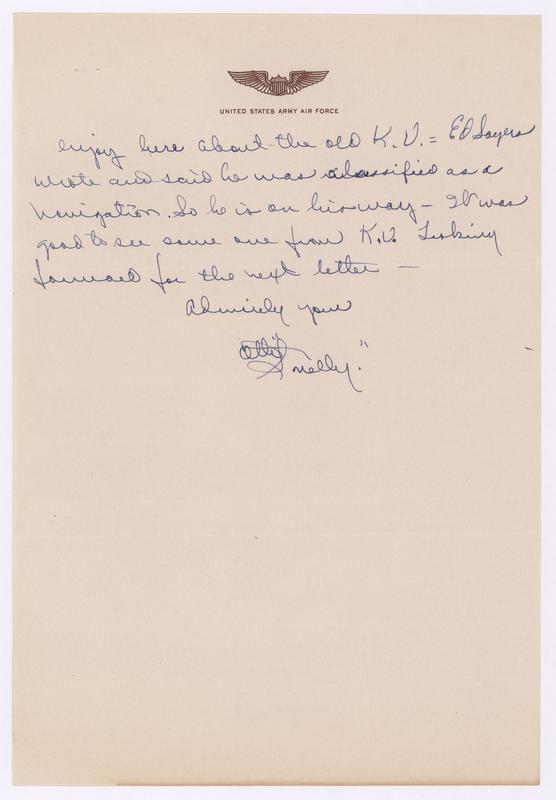 UNITED STATES ARMY AIR FORCE
enjoy here about the old K.U. = Ed Sayers
wrote and said he was classified as a
Navigation. So he is on his way – It was
good to see some one from K.U. Looking
forward for the next letter —
Admirely your
"Snelly."